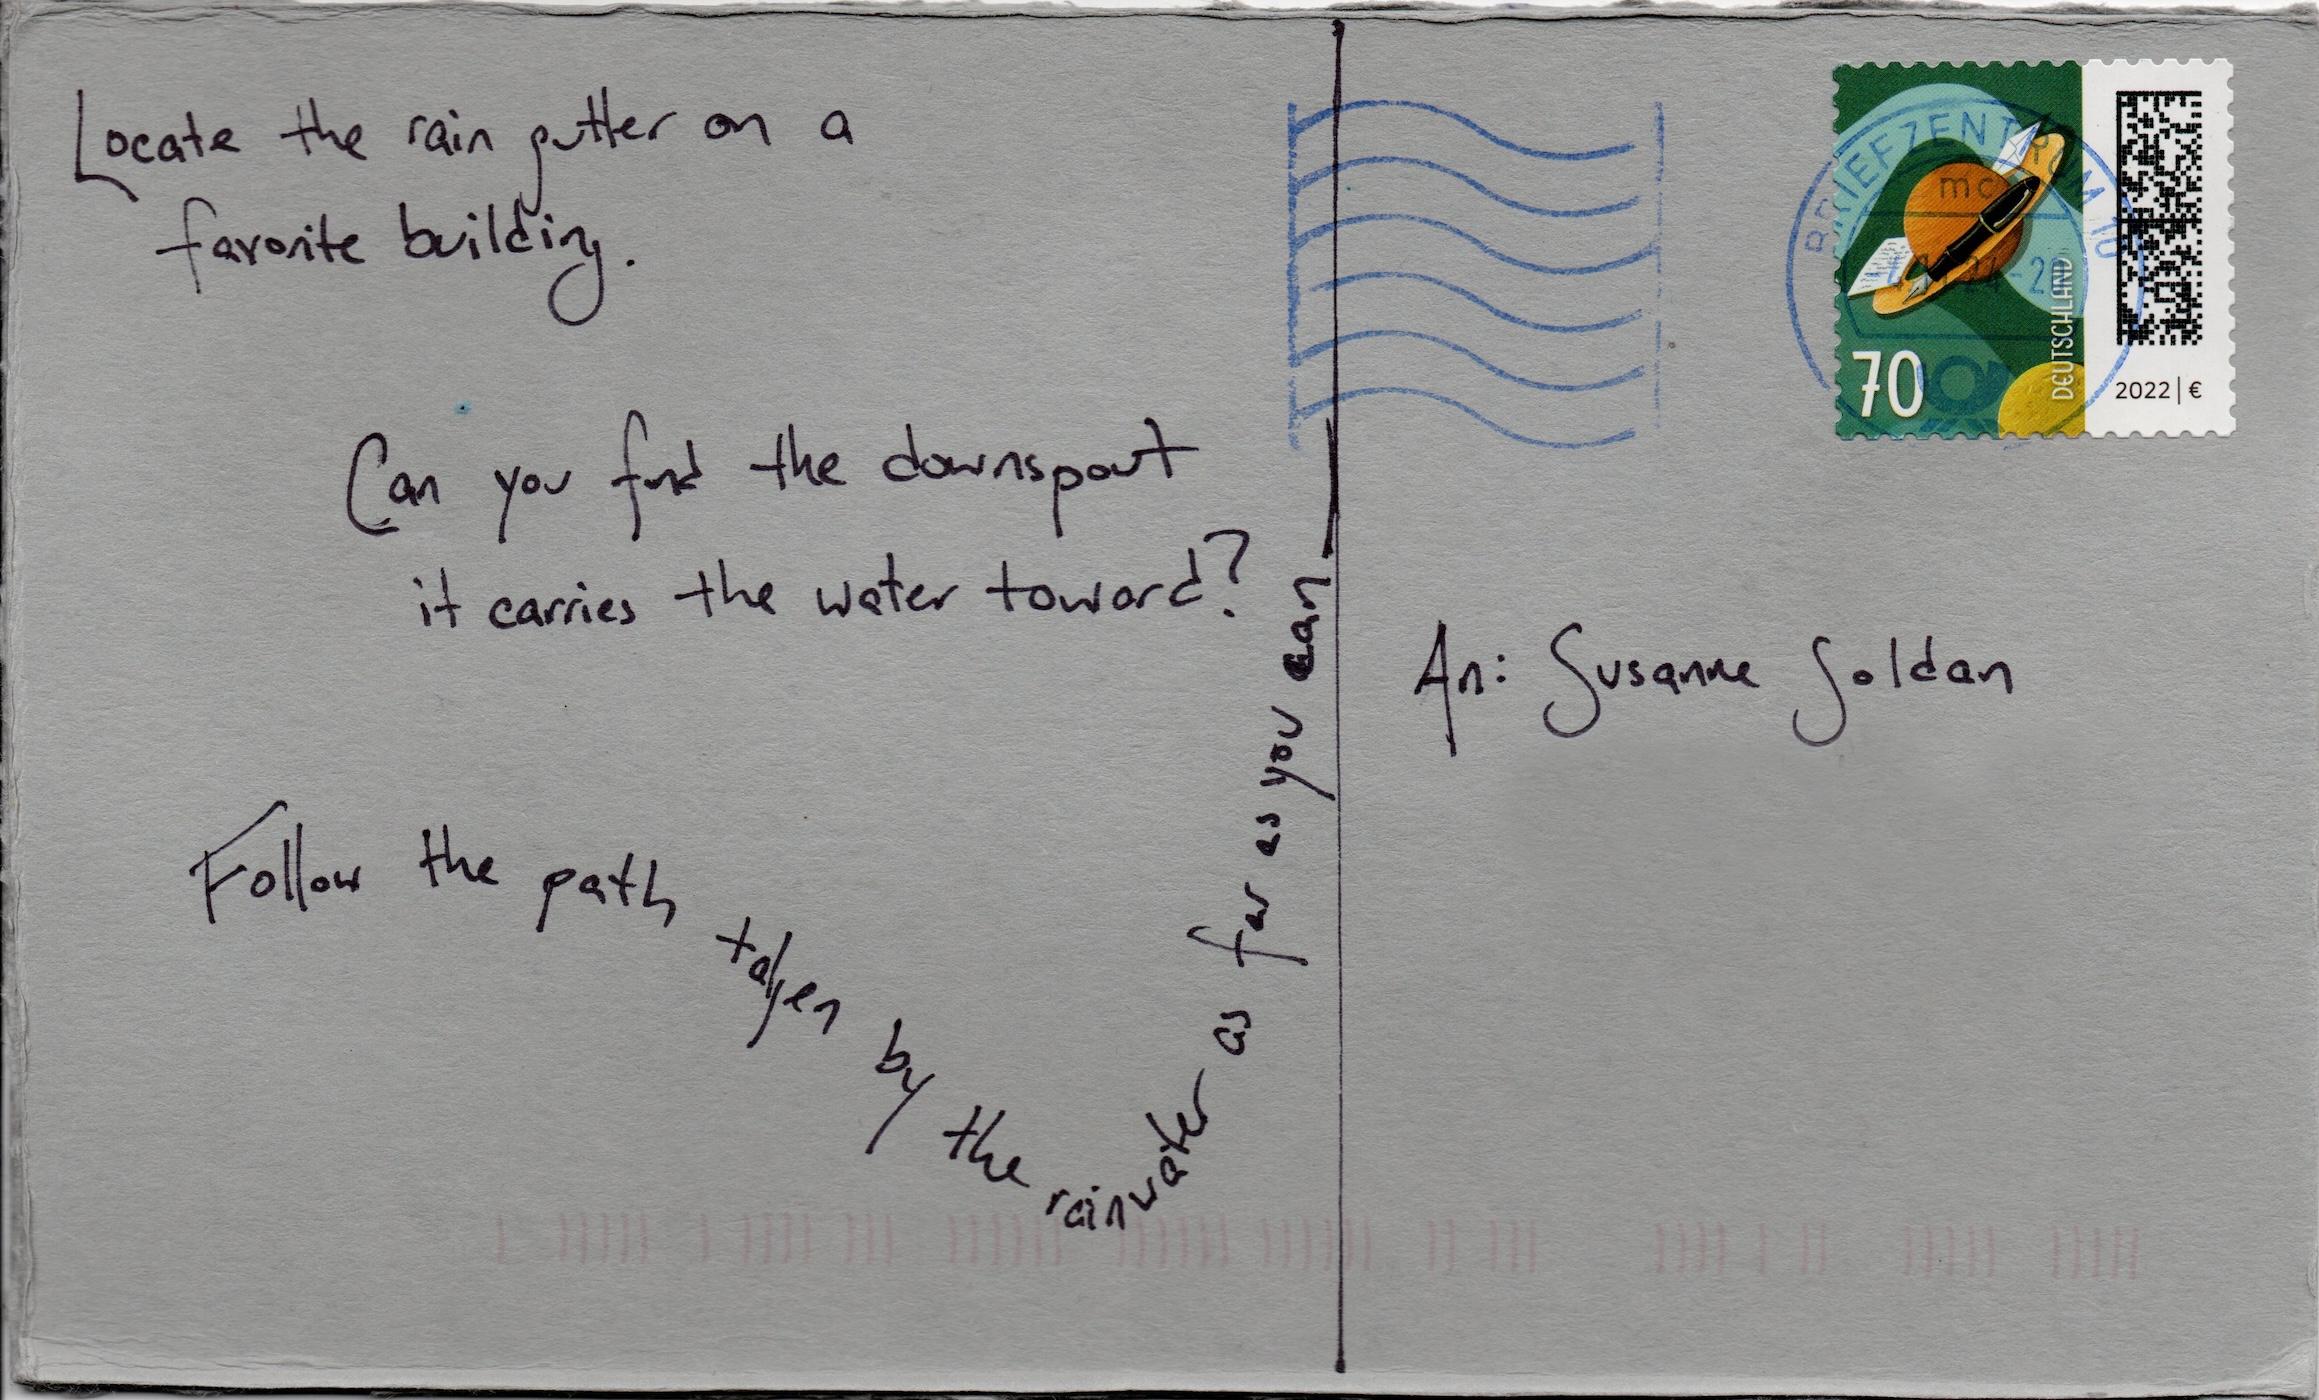 Locate the rain gutter on a
favorite building.
Can you find the downspout
it carries the water toward?
Follow the path taken by the rainwater as far as you can
An: Susanne Soldan
BRIEFZENTRUM 10
mc
70
DEUTSCHLAND
2022 | €